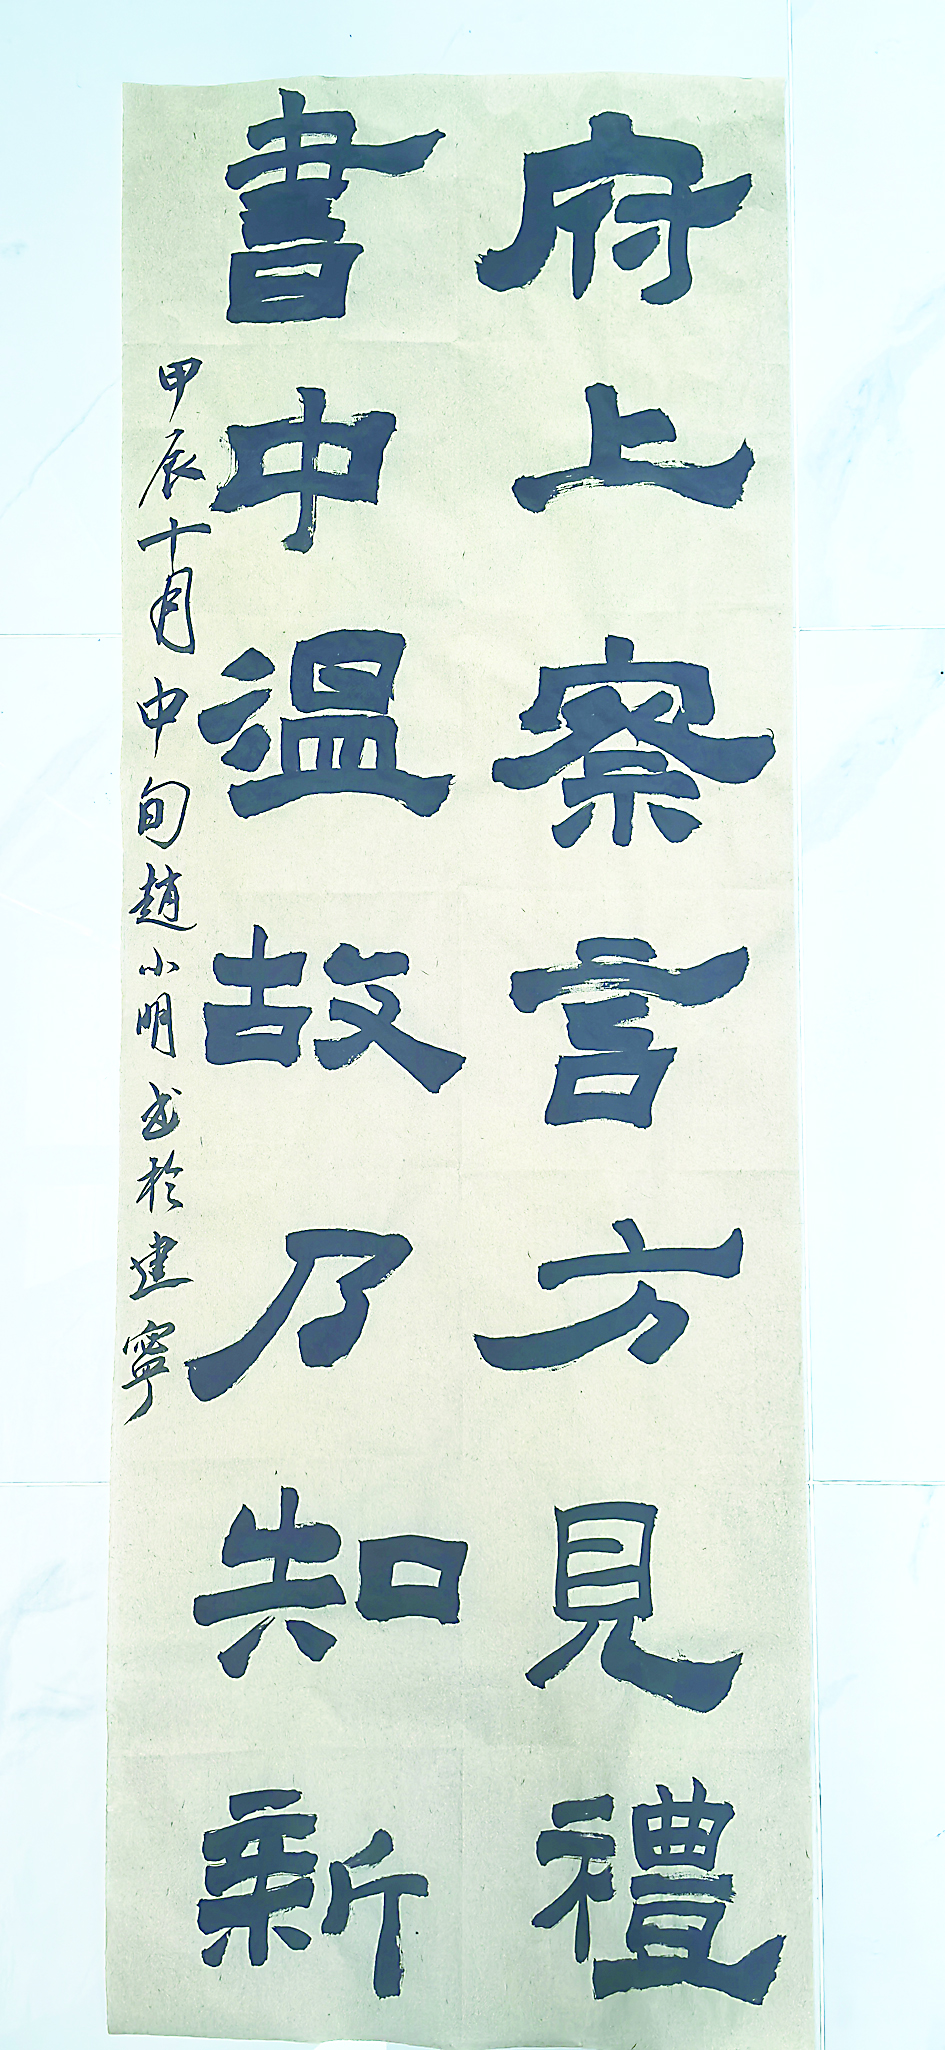 府上察言方見禮
書中温故乃知新
甲辰十月中旬趙小明書於建寧